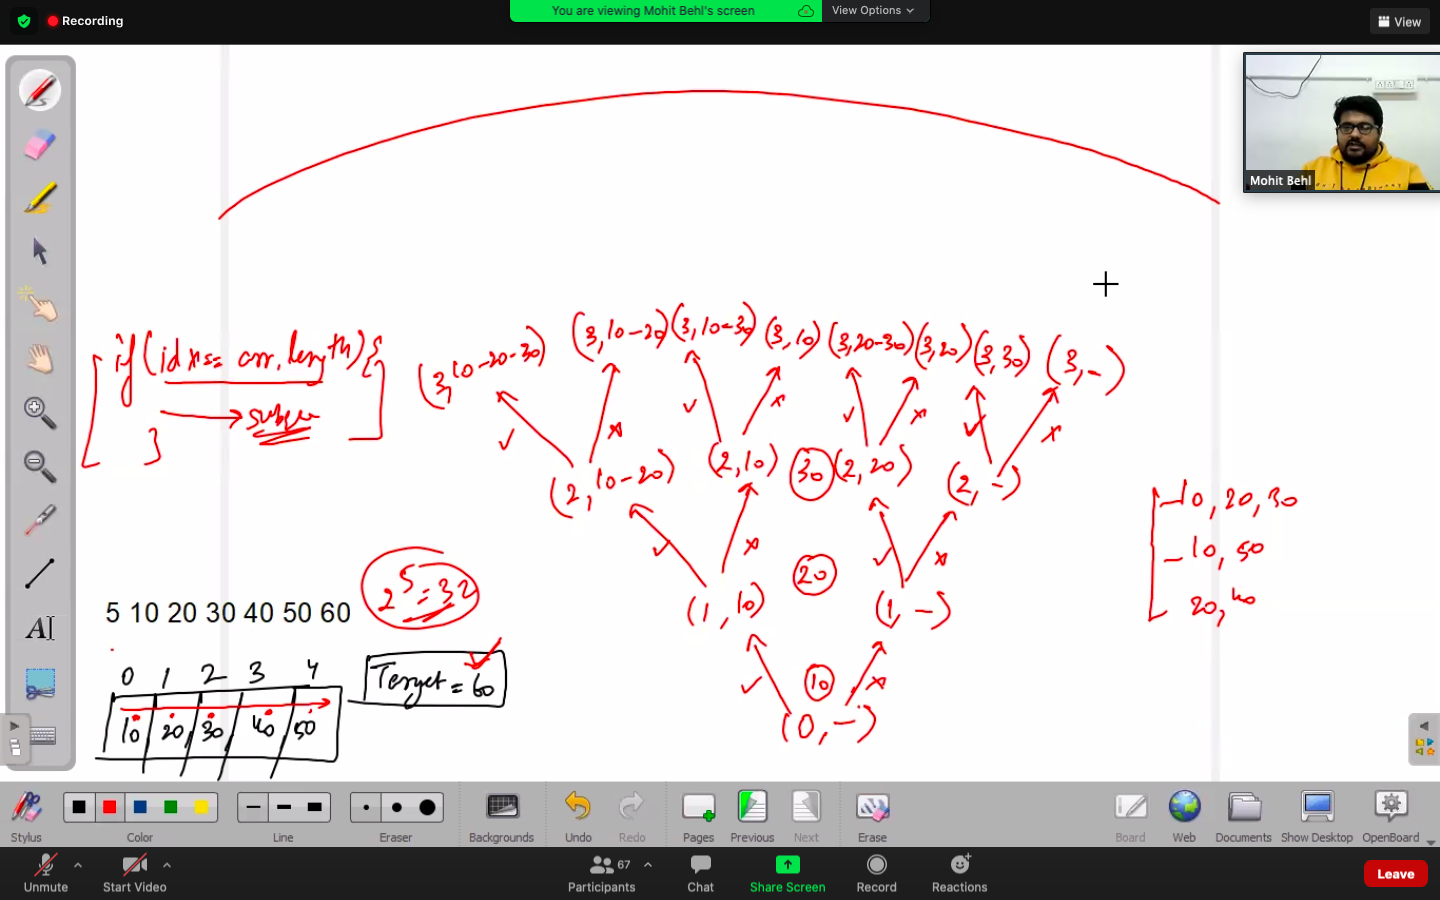 Recording
You are viewing Mohit Behl's screen
View Options
View
Mohit Behl
(3,10-20-30) (3,10-20) (3,10-30) (3,10) (3,20-30) (3,20) (3,30) (3,-)
if (idx == arr.length){
}
(2,10-20) (2,10) 30 (2,20) (2,-)
10, 20, 30
10, 50
20, 40
2^5 = 32
(1,10) 20 (1,-)
5 10 20 30 40 50 60
Target = 60
0 1 2 3 4
10 20 30 40 50
10
(0,-)
A
Stylus Color Line Eraser Backgrounds Undo Redo Pages Previous Next Erase Board Web Documents Show Desktop OpenBoard
67
Unmute Start Video Participants Chat Share Screen Record Reactions Leave